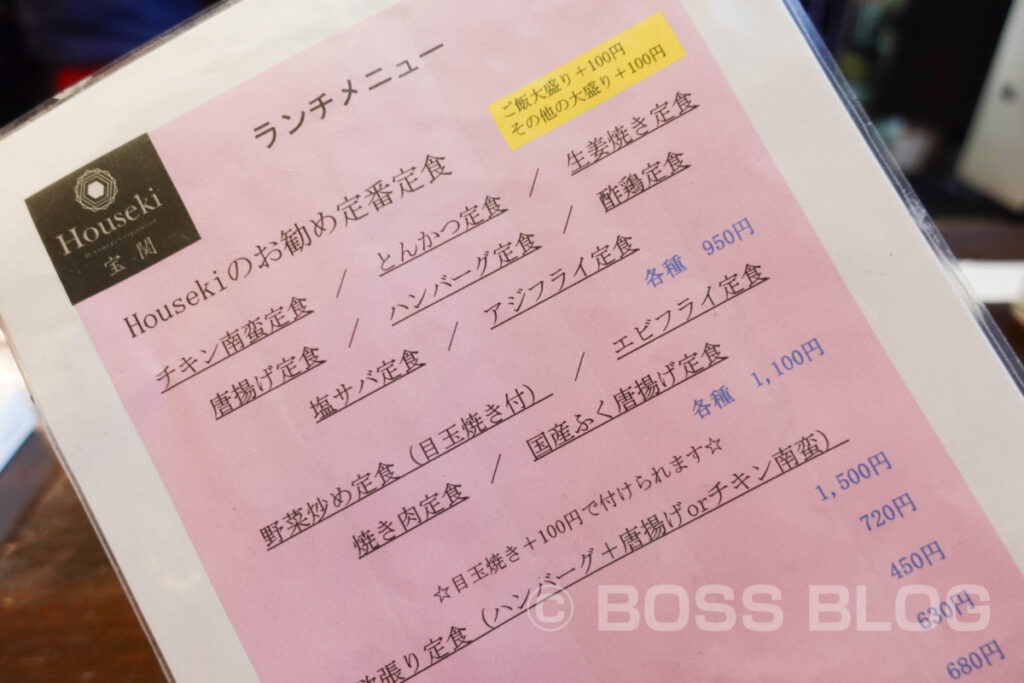 ランチメニュー
ご飯大盛り＋100円
その他の大盛り＋100円
Houseki
宝関
Housekiのお勧め定番定食
チキン南蛮定食 / とんかつ定食 / 生姜焼き定食
唐揚げ定食 / ハンバーグ定食 / 酢鶏定食
塩サバ定食 / アジフライ定食
各種 950円
野菜炒め定食（目玉焼き付） / エビフライ定食
焼き肉定食 / 国産ふく唐揚げ定食
各種 1,100円
☆目玉焼き＋100円で付けられます☆
張り定食（ハンバーグ＋唐揚げorチキン南蛮）
1,500円
720円
450円
630円
680円
© BOSS BLOG